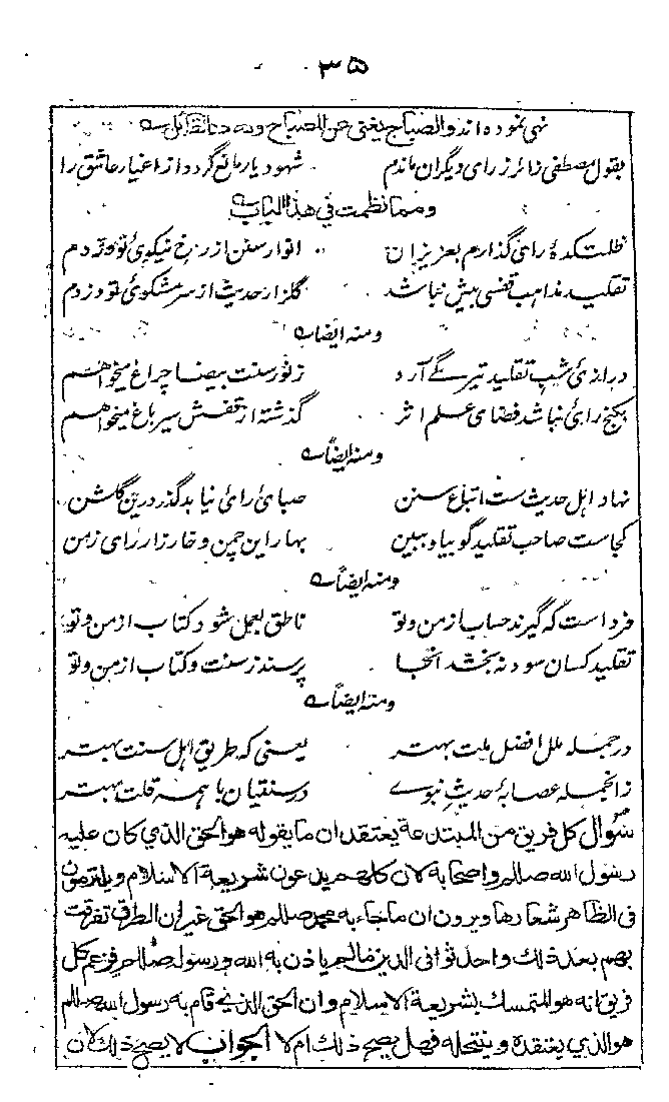 ۳۵
نهی نموده اند والصباح یغنی عن المصباح ولله در القائل
بقول مصطفی زائر ز رای دیگران ماندم شهود یار مانع گردد از اغیار عاشق را
ومما نظمت فی هذا الباب
ظلمت کدهٔ رای گذارم بعزیزان انوار سنن از رخ نیکوی تو دزدم
تقلید مذاهب قفسی بیش نباشد گلزار حدیث از سر مشکوی تو دزدم
ومنه ایضا
درازی شب تقلید تیرگے آرد ز نور سنت بیضا چراغ میخواهم
بکنج رای نباشد فضای علم اثر گذشته از قفس سیر باغ میخواهم
ومنه ایضاً
نهاد اهل حدیث ست اتباع سنن صبای رای نیاید گذر درین گلشن
کجاست صاحب تقلید گو بیا و ببین بهار این چمن و خارزار رای زمن
ومنه ایضاً
فرداست که گیرند حساب از من و تو ناطق بعمل شود کتاب از من و تو
تقلید کسان سود نه بخشد آنجا پرسند ز سنت و کتاب از من و تو
ومنه ایضاً
در جمله ملل افضل ملت بهتر یعنی که طریق اهل سنت بهتر
زانجمله عصابهٔ حدیث نبوے در سنتیان با همه قلت بهتر
سؤال کل فریق من المبتدعة یعتقد ان ما یقوله هو الحق الذی کان علیه
رسول الله صللم واصحابه لان کلهم یدعون شریعة الاسلام ویلتزمون
فی الظاهر شعارها ویرون ان ما جاء به محمد صللم هو الحق غیر ان الطرق تفرقت
بهم بعد ذلک واحدثوا فی الدین ما لم یاذن به الله ورسوله صللم فزعم کل
فریق انه هو المتمسک بشریعة الاسلام وان الحق الذی قام به رسول الله صللم
هو الذی یعتقده وینتحله فهل یصح ذلک ام لا الجواب لا یصح ذلک لان